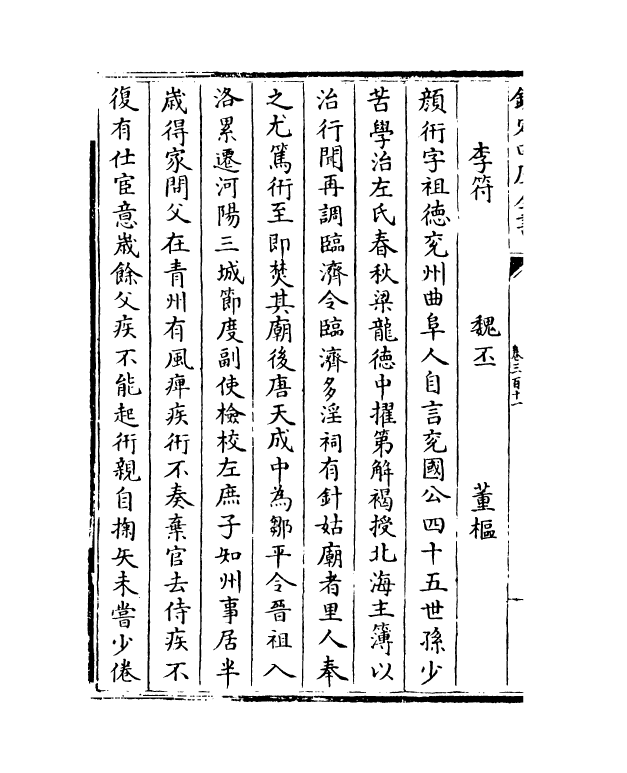 欽定四庫全書
卷三百十一
李符　魏丕　董樞
顔衎字祖德兖州曲阜人自言兖國公四十五世孫少
苦學治左氏春秋梁龍德中擢第解褐授北海主簿以
治行聞再調臨濟令臨濟多淫祠有針姑廟者里人奉
之尤篤衎至即焚其廟後唐天成中為鄒平令晉祖入
洛累遷河陽三城節度副使檢校左庶子知州事居半
歳得家問父在青州有風痺疾衎不奏棄官去侍疾不
復有仕宦意歳餘父疾不能起衎親自掬矢未嘗少倦